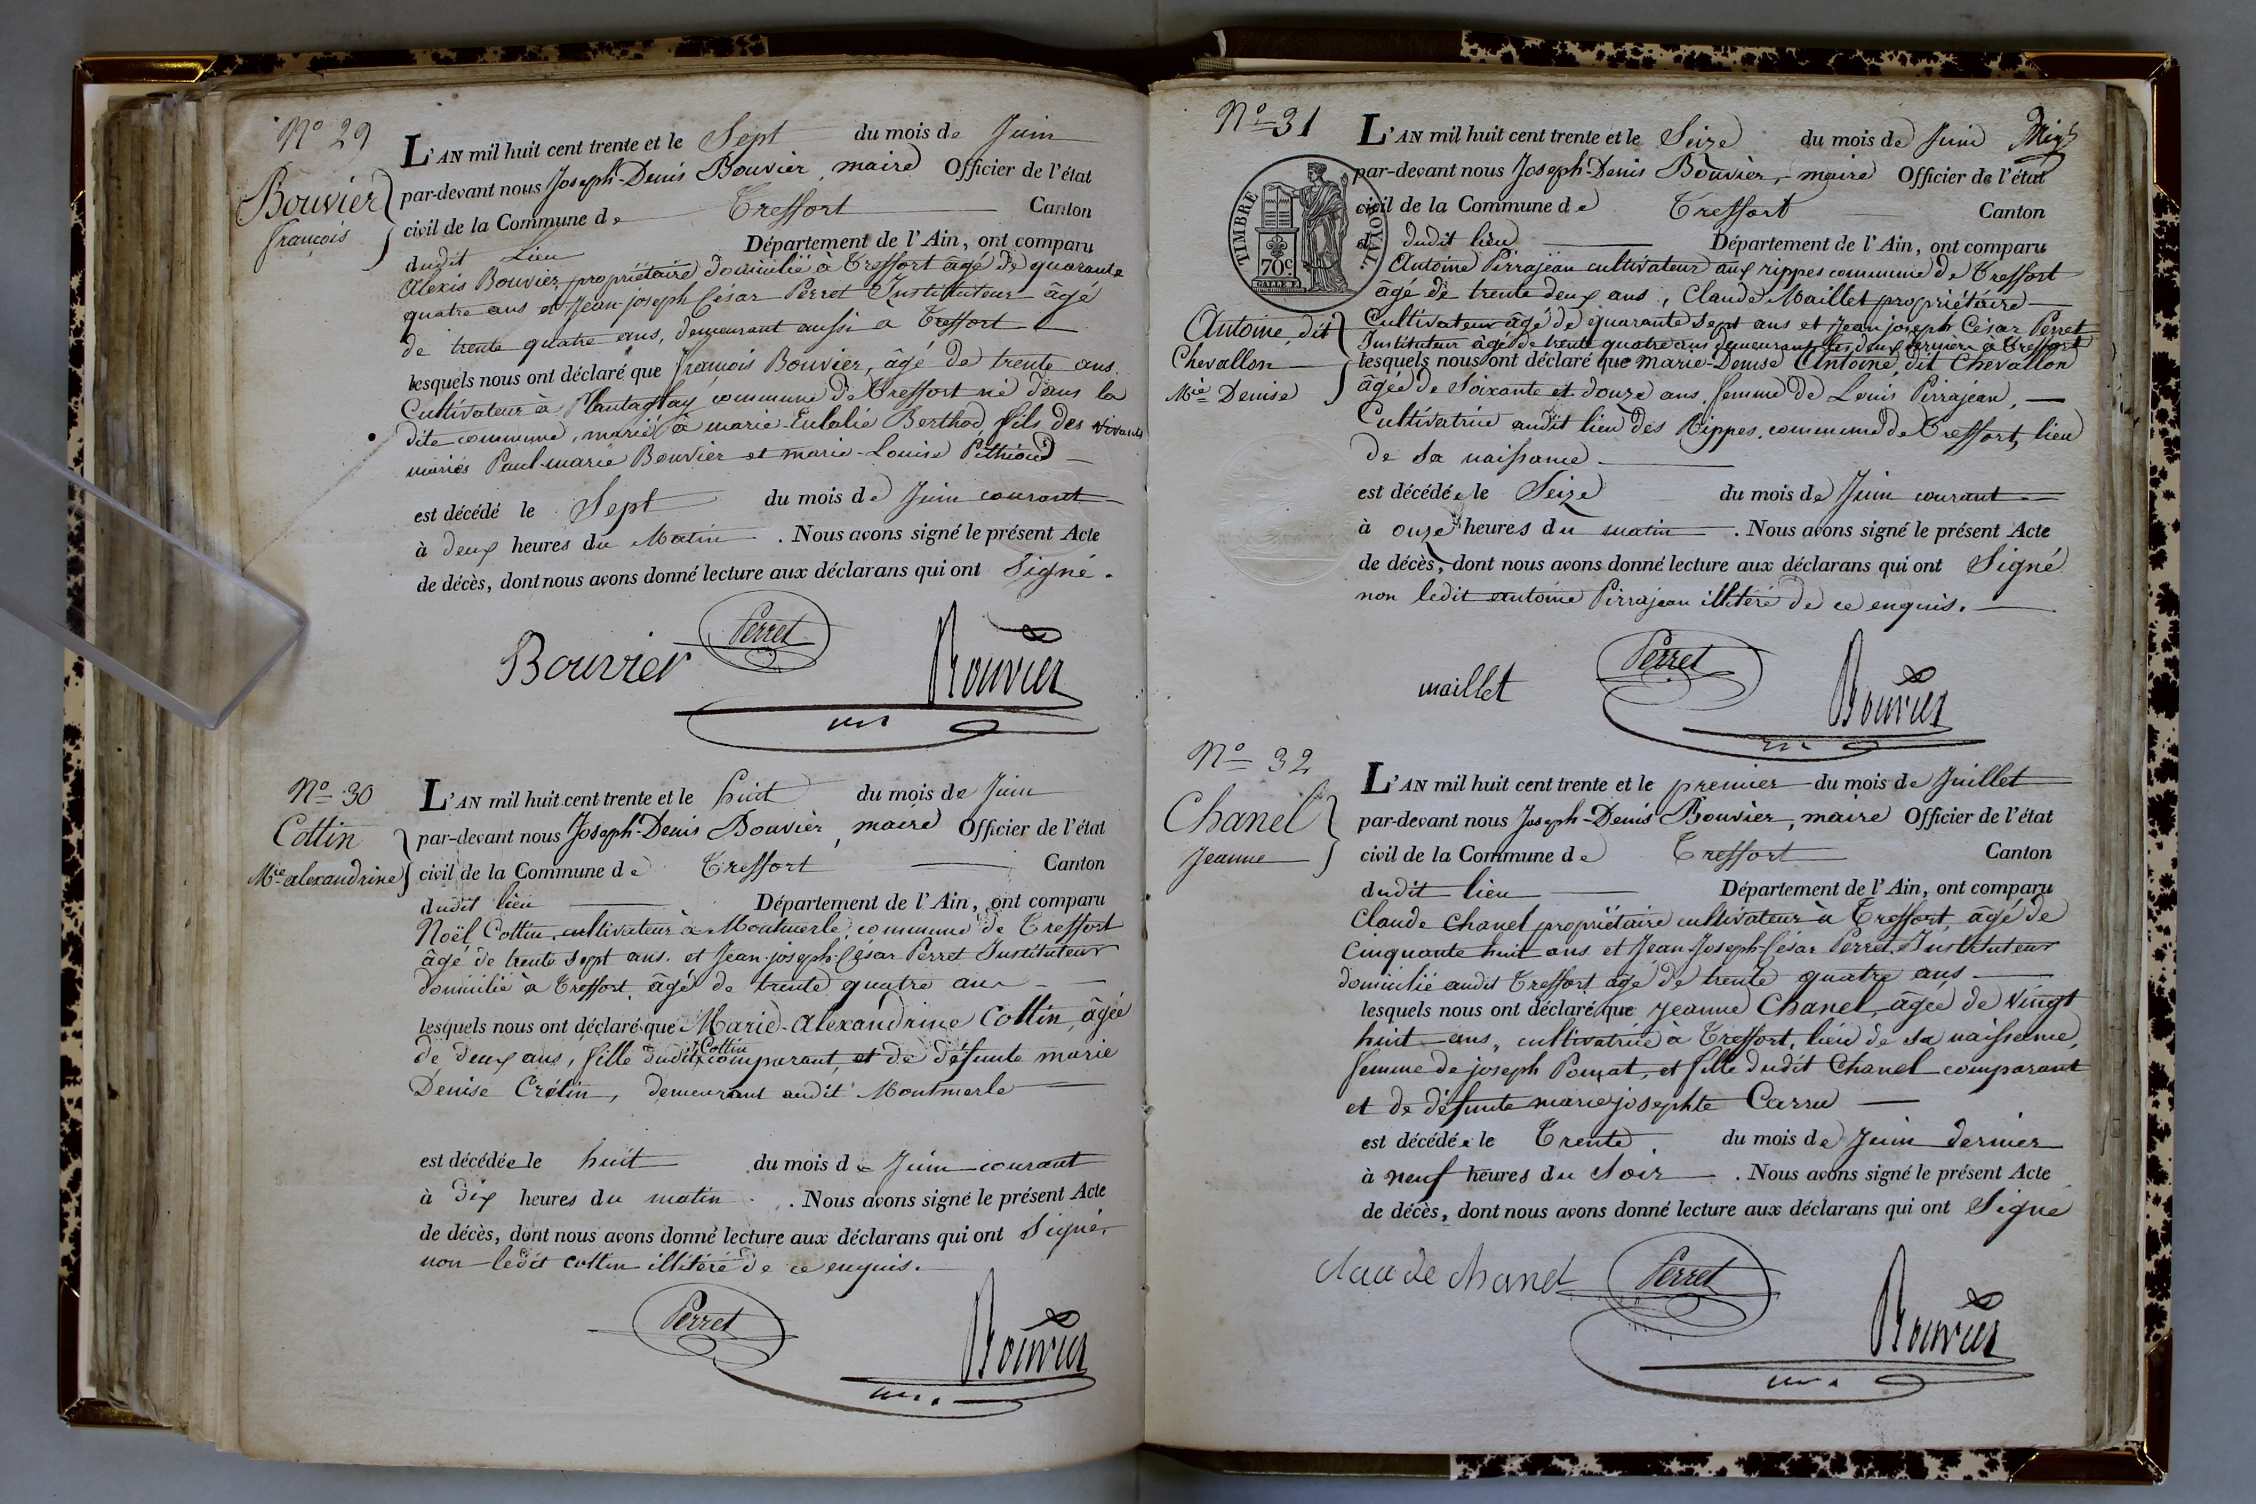 Nº 29
Bouvier
françois
L'AN mil huit cent trente et le Sept du mois de Juin
par-devant nous Joseph-Denis Bouvier, maire Officier de l'état
civil de la Commune de Treffort Canton
dudit Lieu Département de l'Ain, ont comparu
Alexis Bouvier, propriétaire domicilié à Treffort âgé de quarante
quatre ans et Jean-joseph César Perret Instituteur âgé
de trente quatre ans, demeurant aussi a Treffort
lesquels nous ont déclaré que françois Bouvier, âgé de trente ans
Cultivateur à commune de Treffort né dans la
dite commune, marié à marie-Eulalie Berthod, fils des vivants
mariés Paul-marie Bouvier et marie-Louise
est décédé le Sept du mois de Juin courant
à deux heures du Matin . Nous avons signé le présent Acte
de décès, dont nous avons donné lecture aux déclarans qui ont Signé.
Bouvier Perret Bouvier
Nº 30
Cottin
Mie alexandrine
L'AN mil huit cent trente et le huit du mois de Juin
par-devant nous Joseph-Denis Bouvier, maire Officier de l'état
civil de la Commune de Treffort Canton
dudit lieu Département de l'Ain, ont comparu
Noël Cottin, cultivateur à Montmerle, commune de Treffort
âgé de trente sept ans. et Jean-joseph-César Perret Instituteur
domicilié à Treffort, âgé de trente quatre ans
lesquels nous ont déclaré que Marie-Alexandrine Cottin, âgée
de deux ans, fille dudit Cottin comparant, et de défunte marie
Denise Crétin, demeurant audit Montmerle
est décédée le huit du mois de Juin courant
à dix heures du matin . Nous avons signé le présent Acte
de décès, dont nous avons donné lecture aux déclarans qui ont Signé,
non ledit cottin illitéré de ce enquis.
Perret Bouvier
Nº 31
TIMBRE ROYAL.
70c
Antoine, dit
Chevallon
Mie Denise
L'AN mil huit cent trente et le Seize du mois de Juin
par-devant nous Joseph-Denis Bouvier, maire Officier de l'état
civil de la Commune de Treffort Canton
dudit lieu Département de l'Ain, ont comparu
Antoine Pirrajean cultivateur aux rippes commune de Treffort
âgé de trente deux ans, Claude Maillet propriétaire
Cultivateur âgé de quarante sept ans et Jean joseph César Perret
Instituteur âgé de trente quatre ans demeurant les deux derniers à Treffort
lesquels nous ont déclaré que marie-Denise Antoine, dit Chevallon
âgée de Soixante et douze ans, femme de Louis Pirrajean,
Cultivatrice audit lieu des Rippes, commune de Treffort, lieu
de sa naissance
est décédée le Seize du mois de Juin courant
à onze heures du matin . Nous avons signé le présent Acte
de décès, dont nous avons donné lecture aux déclarans qui ont Signé
non ledit antoine Pirrajean illitéré de ce enquis.
maillet Perret Bouvier
Nº 32
Chanel
Jeanne
L'AN mil huit cent trente et le premier du mois de Juillet
par-devant nous Joseph-Denis Bouvier, maire Officier de l'état
civil de la Commune de Treffort Canton
dudit lieu Département de l'Ain, ont comparu
Claude Chanel propriétaire cultivateur à Treffort, âgé de
Cinquante huit ans et Jean Joseph César Perret Instituteur
domicilié audit Treffort âgé de trente quatre ans
lesquels nous ont déclaré que Jeanne Chanel, âgée de Vingt
huit ans, cultivatrice à Treffort, lieu de sa naissance,
femme de joseph et fille dudit Chanel comparant
et de défunte marie josephte Carru
est décédée le Trente du mois de Juin dernier
à neuf heures du Soir . Nous avons signé le présent Acte
de décès, dont nous avons donné lecture aux déclarans qui ont Signé
claude chanel Perret Bouvier